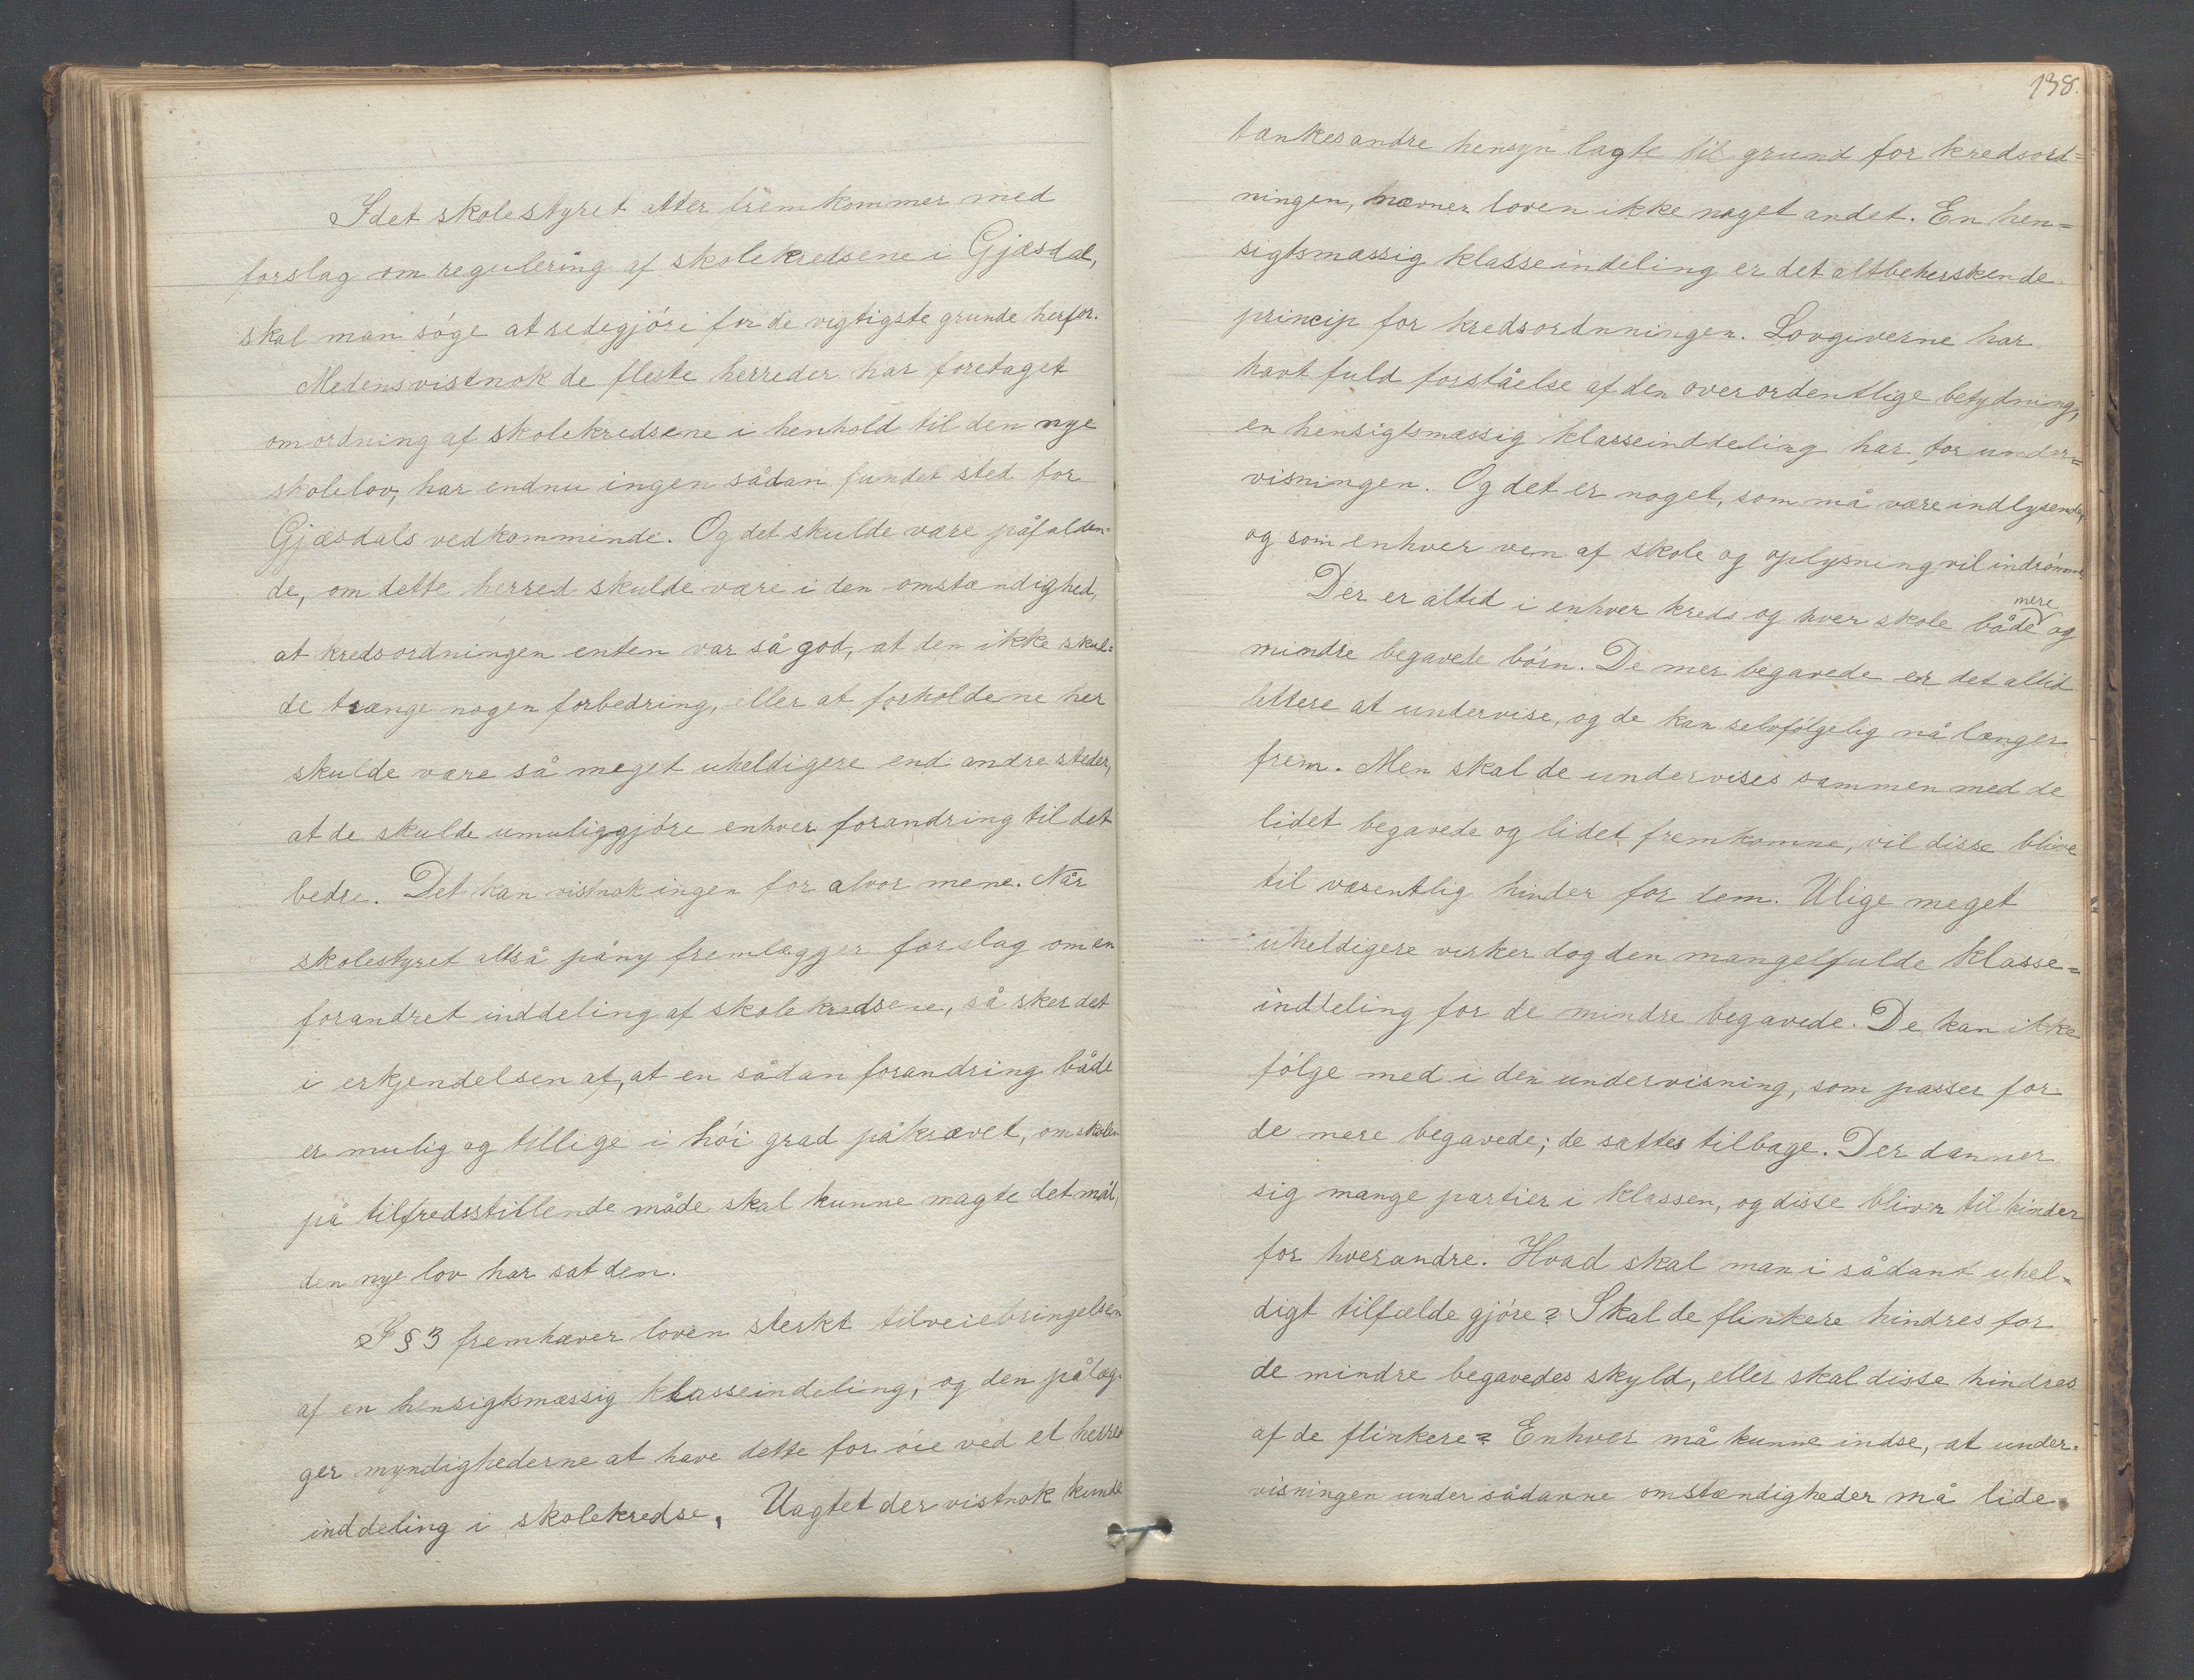 Idet skolestyret atter fremkommer med
forslag om regulering af skolekredsene i Gjæsdal,
skal man söge at redegjöre for de vigtigste grunde herfor.
Medens vistnok de fleste herreder har foretaget
omordning af skolekredsene i henhold til den nye
skolelov, har endnu ingen sådan fundet sted for
Gjæsdals vedkommende. Og det skulde være påfalden=
de, om dette herred skulde være i den omstændighed,
at kredsordningen enten var så god, at den ikke skul=
de trænge nogen forbedring, eller at forholdene her
skulde være så meget uheldigere end andre steder,
at de skulde umuliggjöre enhver forandring til det
bedre. Det kan vistnok ingen for alvor mene. Når
skolestyret altså påny fremlægger forslag om en
forandret inddeling af skolekredsene, så sker det
i erkjendelsen af, at en sådan forandring både
er mulig og tillige i höi grad påkrævet, om skolen
på tilfredsstillende måde skal kunne magte det mål,
den nye lov har sat den.
I § 3 fremhæver loven sterkt tilveiebringelsen
af en hensigtsmæssig klasseindeling, og den pålæg-
ger myndighederne at have dette for öie ved et herred
inddeling i skolekredse. Uagtet der vistnok kunde
138.
tænkes andre hensyn lagte til grund for kredsord=
ningen, nævner loven ikke noget andet. En hen=
sigtsmæssig klasseindeling er det altbeherskende
princip for kredsordnningen. Lovgiverne har
havt fuld forståelse af den overordentlige betydning,
en hensigtsmæssig klasseinddeling har for under=
visningen. Og det er noget, som må være indlysende,
og som enhver ven af skole og oplysning vil indrömme.
Der er altid i enhver kreds og hver skole både mere og
mindre begavede börn. De mer begavede er det altid
lettere at undervise, og de kan selvfölgelig nå længer
frem. Men skal de undervises sammen med de
lidet begavede og lidet fremkomne, vil disse blive
til væsentlig hinder for dem. Ulige meget
uheldigere virker dog den mangelfulde klasse=
inddeling for de mindre begavede. De kan ikke
fölge med i den undervisning, som passer for
de mere begavede; de sættes tilbage. Der danner
sig mange partier i klassen, og disse bliver til hinder
for hverandre. Hvad skal man i sådant uhel=
digt tilfælde gjöre? Skal de flinkere hindres for
de mindre begavedes skyld, eller skal disse hindres
af de flinkere? Enhver må kunne indse, at under=
visningen under sådanne omstændigheder må lide.